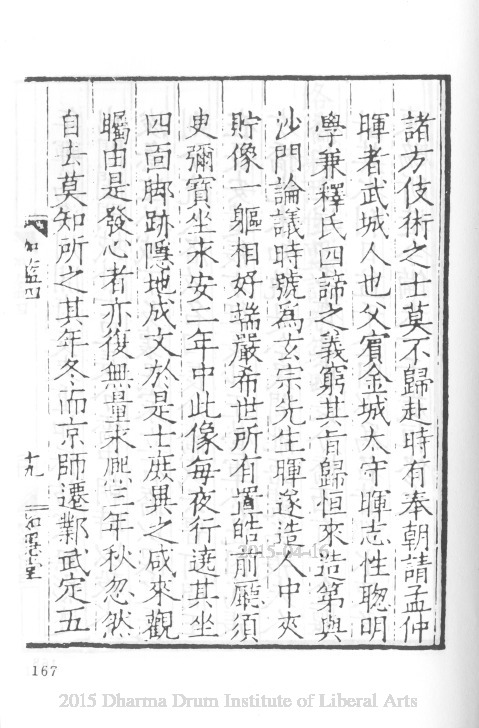 諸方伎術之士莫不歸赴時有奉朝請孟仲
暉者武城人也父賓金城太守暉志性聦明
學兼釋氏四諦之義窮其旨歸恒來造第與
沙門論議時號為玄宗先生暉遂造人中夾
貯像一軀相好端嚴希世所有置皓前廳須
史彌寶坐末安二年中此像每夜行遶其坐
四面脚跡隱地成文於是士庶異之咸來觀
矚由是發心者亦復無量末熈三年秋忽然
自去莫知所之其年冬而京師遷鄴武定五
伽藍四
十九
如隱堂
2015-04-16
167
2015 Dharma Drum Institute of Liberal Arts